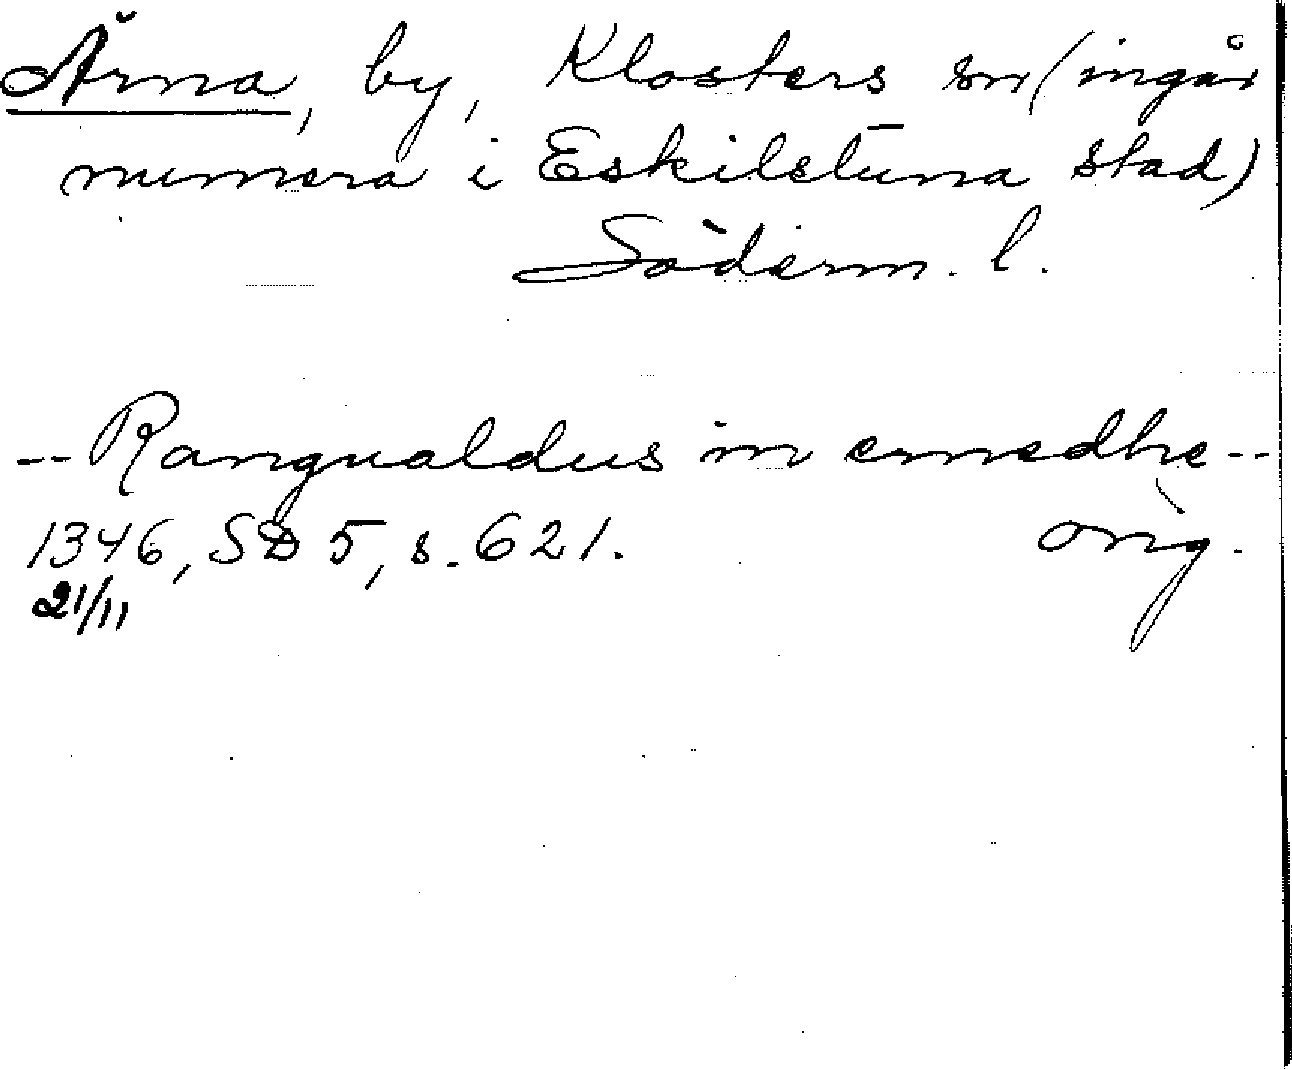 Ärna, by, Klosters sn (ingår
numera i Eskilstuna stad)
Söderm. l.
-- Rangualdus in ernedhe --
1346, SD 5, s. 621. orig.
21/11